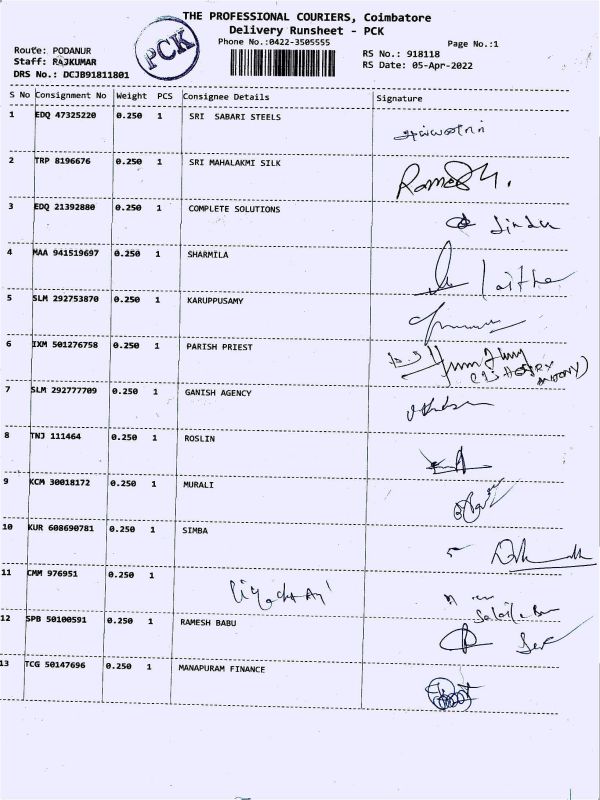 THE PROFESSIONAL COURIERS, Coimbatore
Delivery Runsheet - PCK
Phone No.:0422-3505555
Page No.:1
PCK
Route: PODANUR
Staff: RAJKUMAR
DRS No.: DCJB91811801
RS No.: 918118
RS Date: 05-Apr-2022
S No Consignment No Weight PCS Consignee Details Signature
1 EDQ 47325220 0.250 1 SRI SABARI STEELS
2 TRP 8196676 0.250 1 SRI MAHALAKMI SILK
3 EDQ 21392880 0.250 1 COMPLETE SOLUTIONS
4 MAA 941519697 0.250 1 SHARMILA
5 SLM 292753870 0.250 1 KARUPPUSAMY
6 IXM 501276758 0.250 1 PARISH PRIEST
7 SLM 292777709 0.250 1 GANISH AGENCY
8 TNJ 111464 0.250 1 ROSLIN
9 KCM 30018172 0.250 1 MURALI
10 KUR 608690781 0.250 1 SIMBA
11 CMM 976951 0.250 1
12 SPB 50100591 0.250 1 RAMESH BABU
13 TCG 50147696 0.250 1 MANAPURAM FINANCE